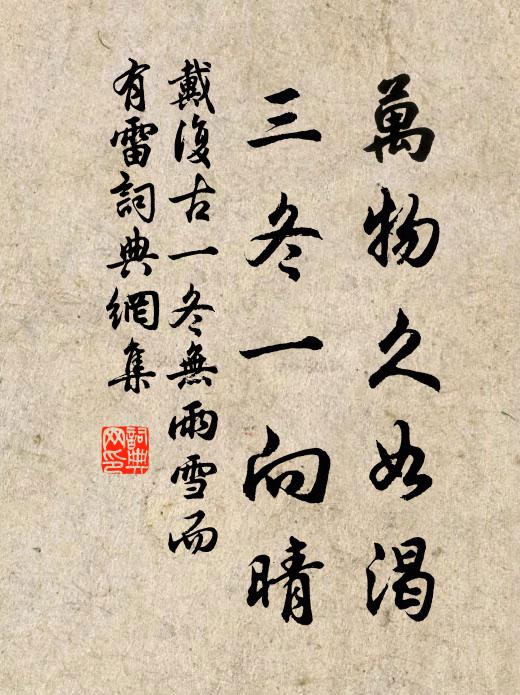 萬物久如渴
三冬一向晴
戴復古一冬無雨雪而
有雷詞典網集
詞典
网印